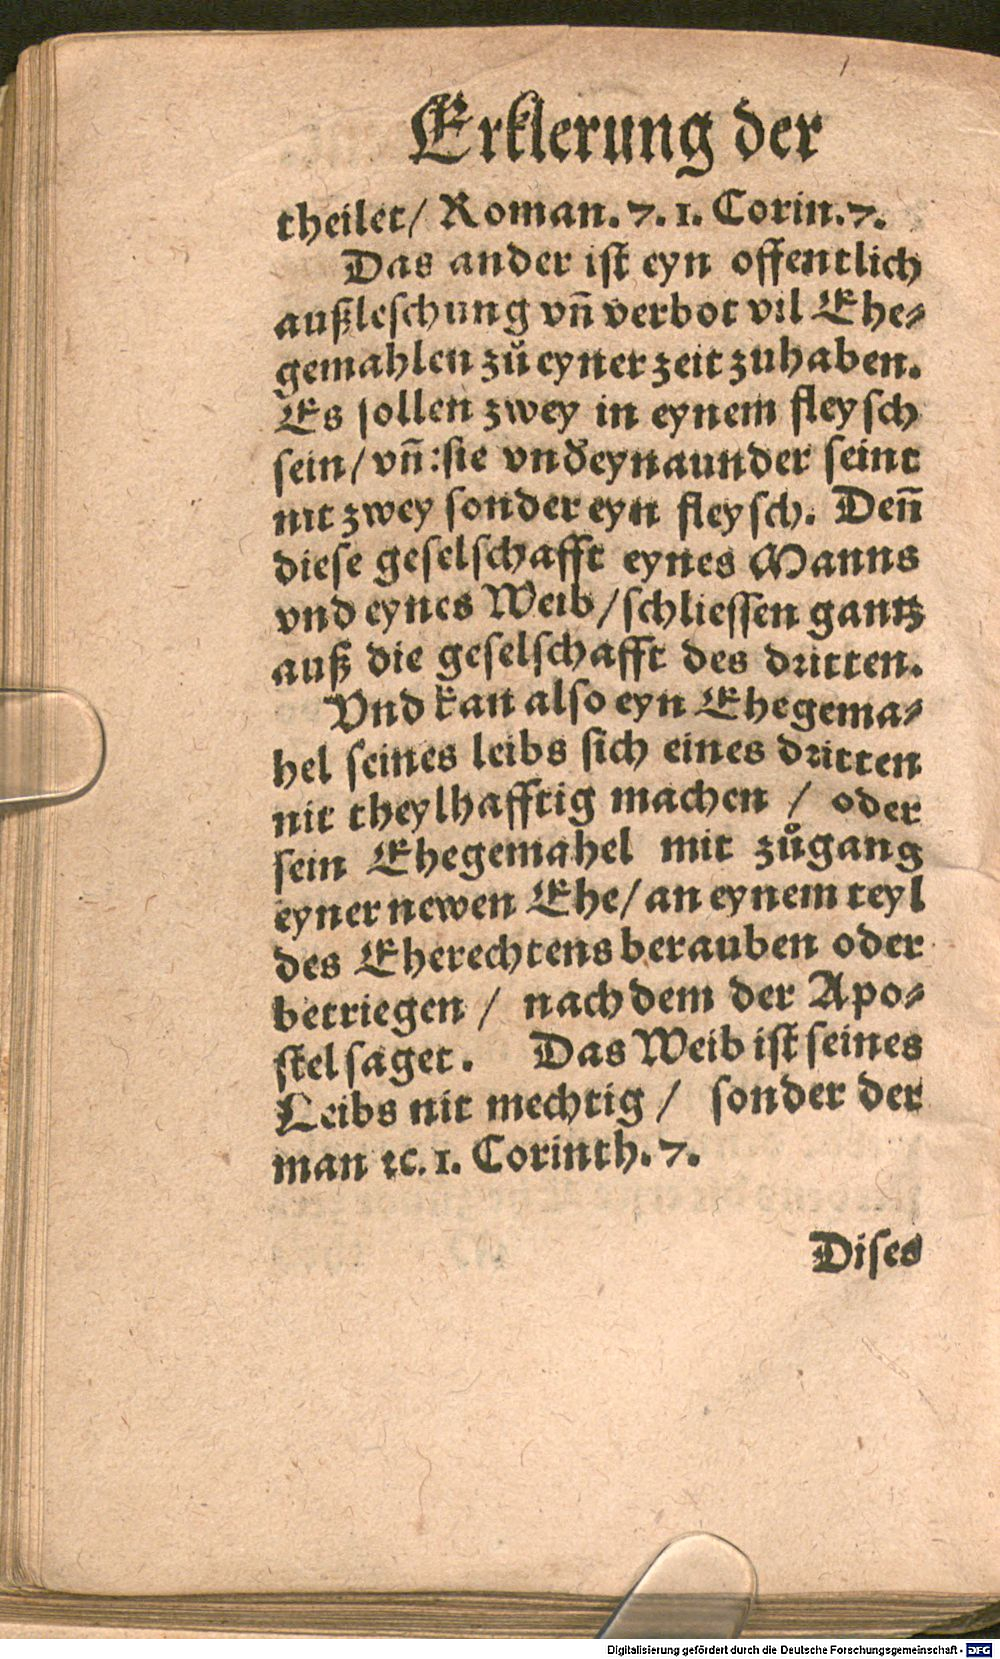 Erklerung der
theilet/ Roman. 7. 1. Corin. 7.
Das ander ist eyn offentlich
außleschung vn̄ verbot vil Ehe⸗
gemahlen zů eyner zeit zuhaben.
Es sollen zwey in eynem fleysch
sein/ vn̄ :sie vnd̕eynaunder seint
nit zwey sonder eyn fleysch. Den̄
diese geselschafft eynes Manns
vnd eynes Weib/ schliessen gantz
auß die geselschafft des dritten.
Vnd kan also eyn Ehegema⸗
hel seines leibs sich eines dritten
nit theylhafftig machen / oder
sein Ehegemahel mit zůgang
eyner newen Ehe/ an eynem teyl
des Eherechtens berauben oder
betriegen / nach dem der Apo⸗
stel saget. Das Weib ist seines
Leibs nit mechtig / sonder der
man ꝛc. 1. Corinth. 7.
Dises
Digitalisierung gefördert durch die Deutsche Forschungsgemeinschaft - DFG